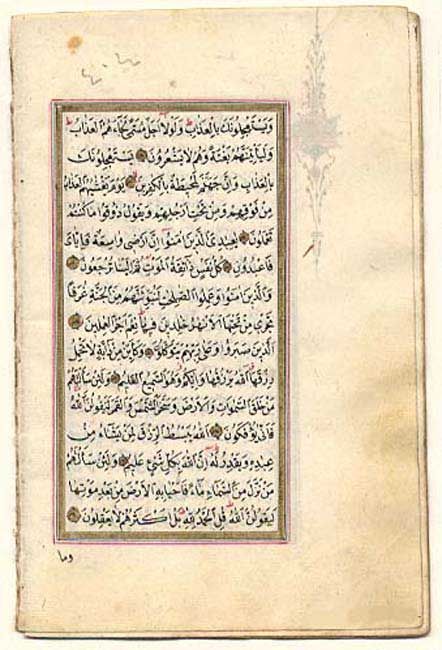 وَيَسْتَعْجِلُونَكَ بِالْعَذَابِ وَلَوْلَا اَجَلٌ مُسَمًّى لَجَاءَهُمُ الْعَذَابُ
وَلَيَأْتِيَنَّهُمْ بَغْتَةً وَهُمْ لَا يَشْعُرُونَ يَسْتَعْجِلُونَكَ
بِالْعَذَابِ وَاِنَّ جَهَنَّمَ لَمُحِيطَةٌ بِالْكَافِرِينَ يَوْمَ يَغْشٰيهُمُ الْعَذَابُ
مِنْ فَوْقِهِمْ وَمِنْ تَحْتِ اَرْجُلِهِمْ وَيَقُولُ ذُوقُوا مَا كُنْتُمْ
تَعْمَلُونَ يَا عِبَادِيَ الَّذِينَ اٰمَنُوا اِنَّ اَرْضِى وَاسِعَةٌ فَاِيَّاىَ
فَاعْبُدُونِ كُلُّ نَفْسٍ ذَائِقَةُ الْمَوْتِ ثُمَّ اِلَيْنَا تُرْجَعُونَ
وَالَّذِينَ اٰمَنُوا وَعَمِلُوا الصَّالِحَاتِ لَنُبَوِّئَنَّهُمْ مِنَ الْجَنَّةِ غُرَفًا
تَجْرِى مِنْ تَحْتِهَا الْاَنْهَارُ خَالِدِينَ فِيهَا نِعْمَ اَجْرُ الْعَامِلِينَ
الَّذِينَ صَبَرُوا وَعَلٰى رَبِّهِمْ يَتَوَكَّلُونَ وَكَاَيِّنْ مِنْ دَابَّةٍ لَا تَحْمِلُ
رِزْقَهَا اَللّٰهُ يَرْزُقُهَا وَاِيَّاكُمْ وَهُوَ السَّمِيعُ الْعَلِيمُ وَلَئِنْ سَاَلْتَهُمْ
مَنْ خَلَقَ السَّمٰوَاتِ وَالْاَرْضَ وَسَخَّرَ الشَّمْسَ وَالْقَمَرَ لَيَقُولُنَّ اللّٰهُ
فَاَنّٰى يُؤْفَكُونَ اَللّٰهُ يَبْسُطُ الرِّزْقَ لِمَنْ يَشَاءُ مِنْ
عِبَادِهِ وَيَقْدِرُ لَهُ اِنَّ اللّٰهَ بِكُلِّ شَىْءٍ عَلِيمٌ وَلَئِنْ سَاَلْتَهُمْ
مَنْ نَزَّلَ مِنَ السَّمَاءِ مَاءً فَاَحْيَا بِهِ الْاَرْضَ مِنْ بَعْدِ مَوْتِهَا
لَيَقُولُنَّ اللّٰهُ قُلِ الْحَمْدُ لِلّٰهِ بَلْ اَكْثَرُهُمْ لَا يَعْقِلُونَ
وما